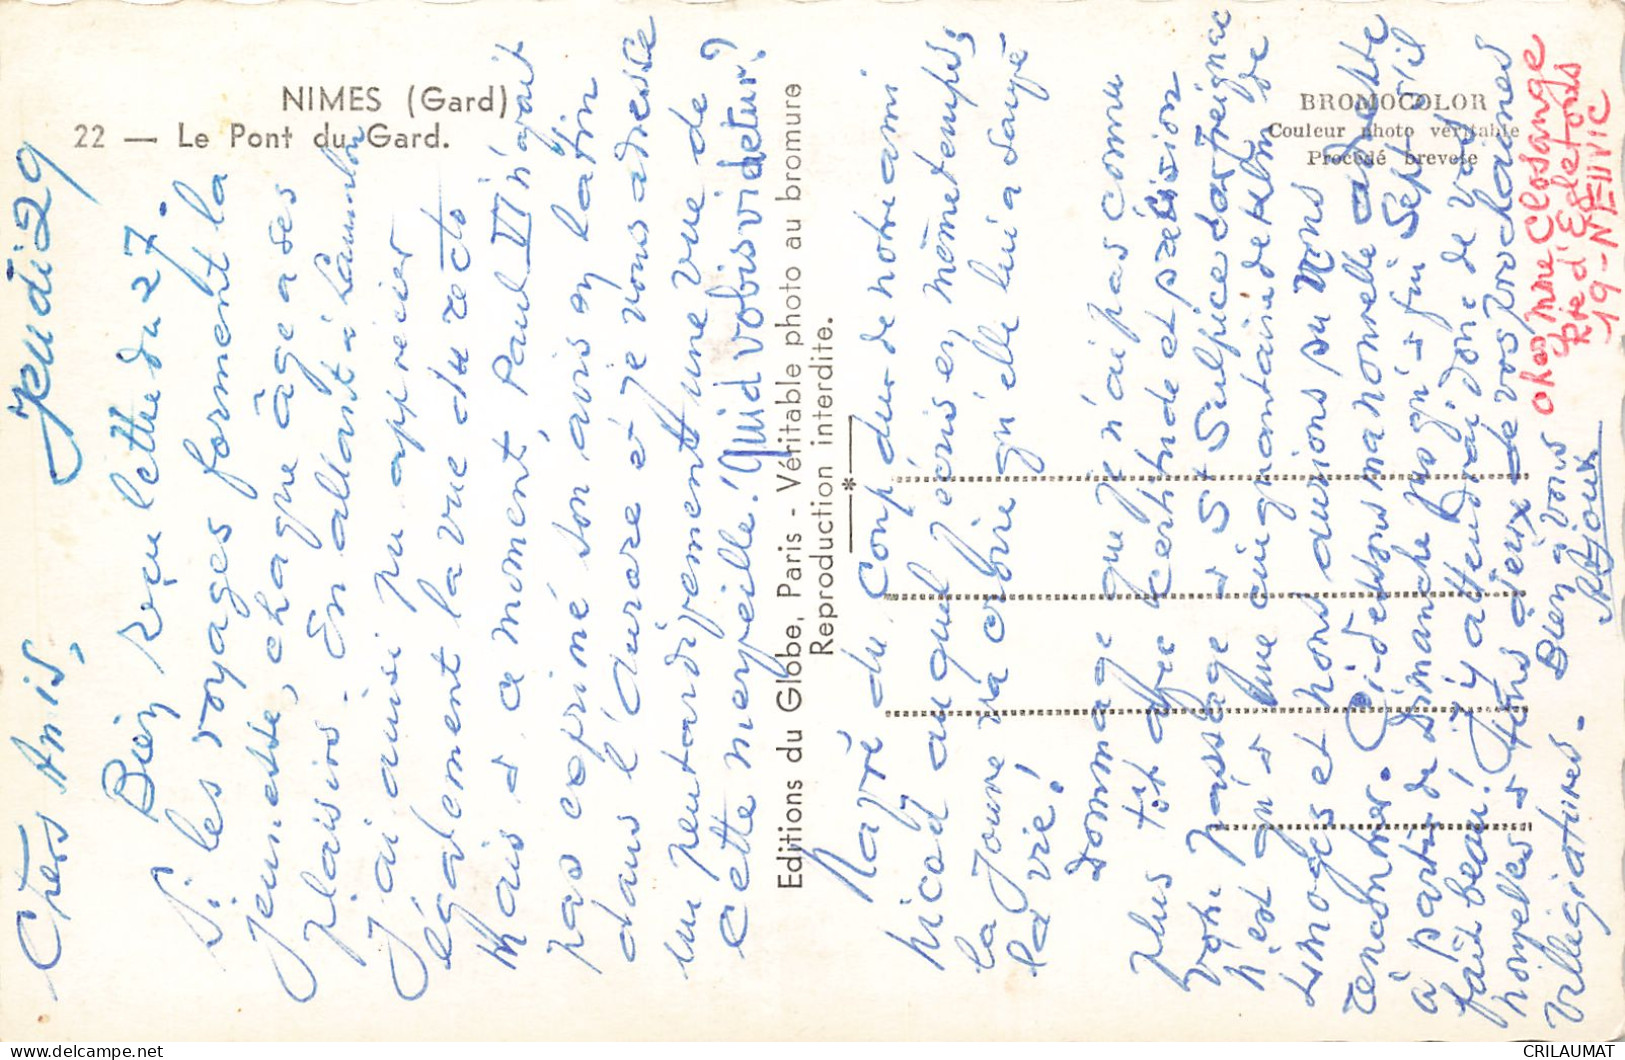 NIMES (Gard)
22 — Le Pont du Gard.
Jeudi 29
Chers Amis,
Bien reçu lettre du 27.
Si les voyages forment la
jeunesse, chaque âge a ses
plaisirs. En allant à
J'ai ainsi pu apprécier
également la vue du recto
Mais à ce moment, Paul VI n'avait
pas exprimé son avis en latin
dans l'Aurore et je vous adresse
un peu tardivement une vue de
cette merveille! Quid vobis videtur?
Editions du Globe, Paris - Véritable photo au bromure
Reproduction interdite.
BROMOCOLOR
Couleur photo véritable
Procédé breveté
Navré du Coup dur de notre ami
Nicod auquel j'écris en même temps;
la Jeanne va croire qu'elle lui a sauvé
la vie!
Dommage que je n'ai pas connu
plus tôt avec certitude et précision
votre passage à St Sulpice
n'est qu'à une cinquantaine de klm de
Limoges et nous aurions pu nous
rencontrer. Ci-dessous ma nouvelle adresse
à partir de Dimanche jusqu'à fin Sept s'il
fait beau! J'y attendrai donc de vos
nouvelles à tous deux de vos prochaines
villégiatures - Bien à vous
chez Mme Closange
Rte d'Egletons
19 - NEUVIC
CRILAUMAT